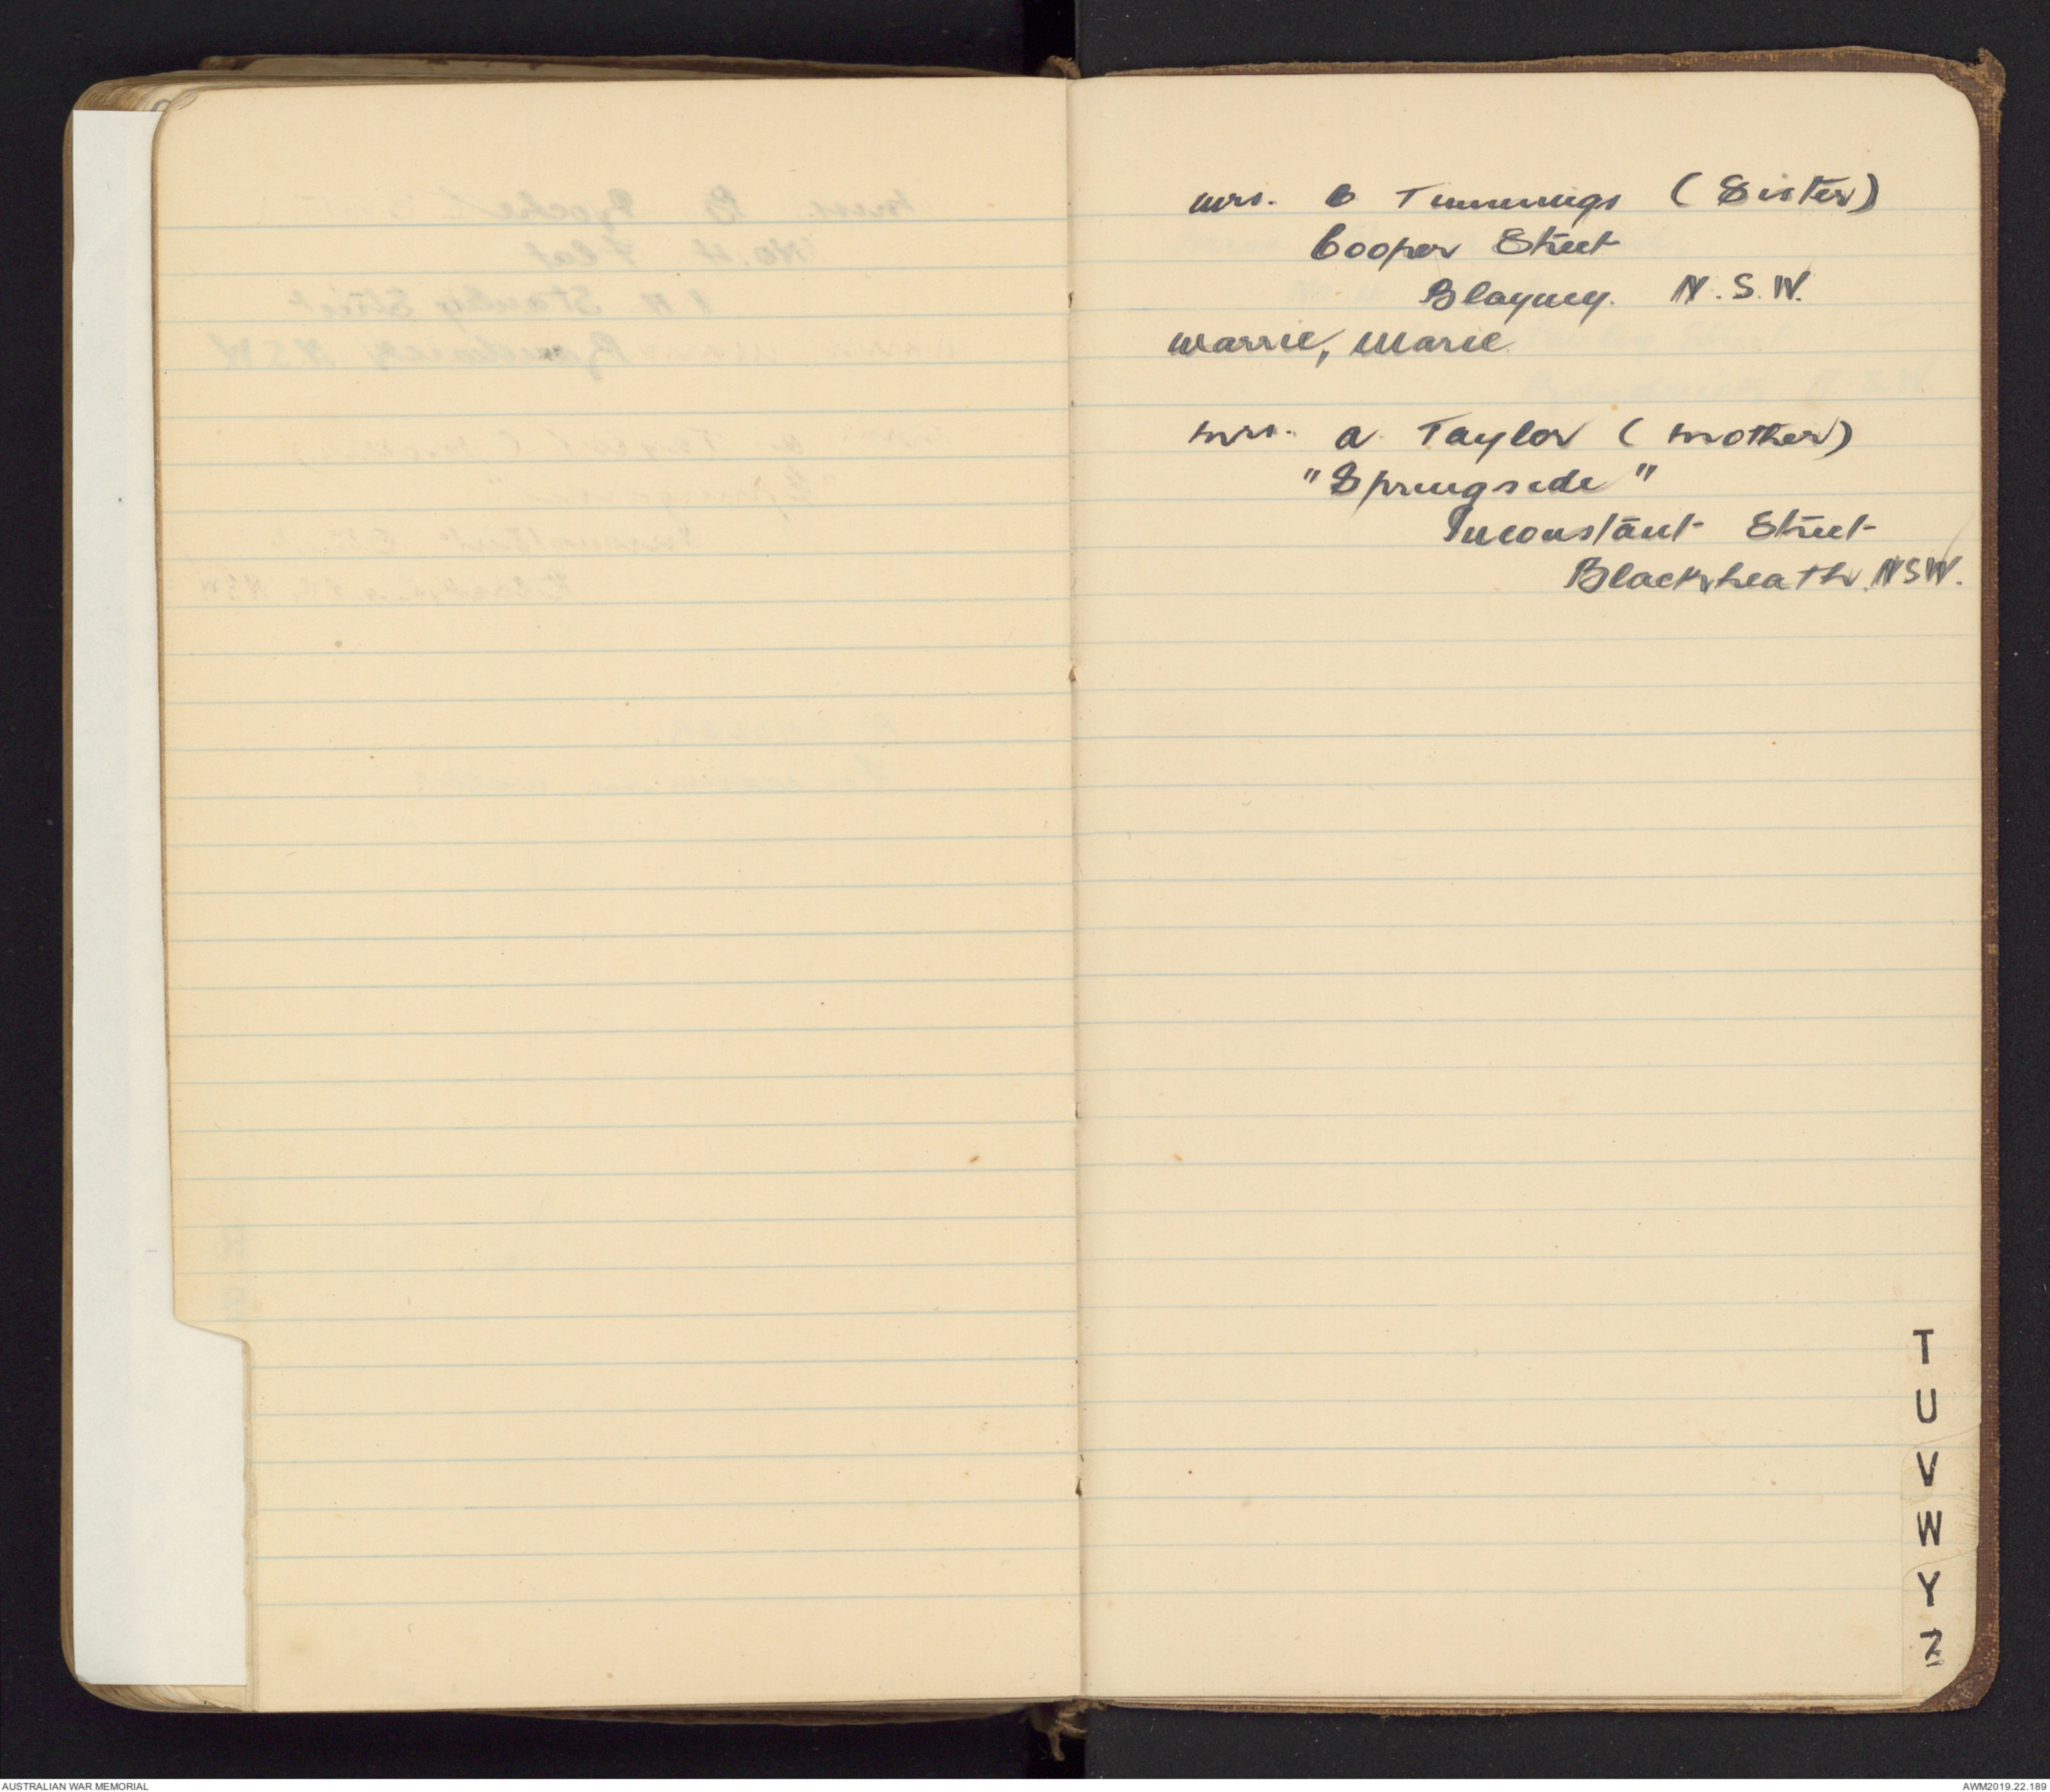 Mrs. C Timmings (Sister)
Cooper Street
Blayney. N.S.W.
Warrie, Marie
Mrs. A Taylor (Mother)
"Springside"
Inconstant Street
Blackheath. NSW.
T
U
V
W
Y
Z
AUSTRALIAN WAR MEMORIAL
AWM2019.22.189